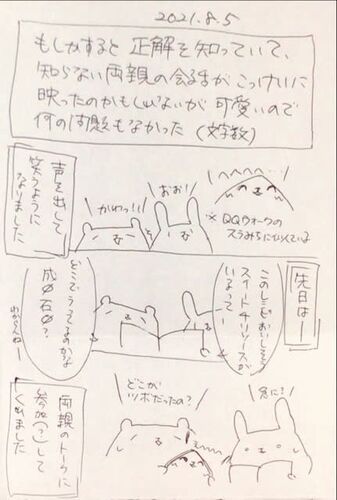 2021.8.5
もしかすると 正解を知っていて、
知らない両親の会話がこっけいに
映ったのかもしれないが可愛いので
何の問題もなかった (文字数)
声を出して
笑うように
なりました
おお!
かわっ!!
※QQウォークの
スラみちに似ている
先日はー
このレシピおいしそう
スイートチリソースが
いるってー
どこでうってるのかな
成城石井?
わからんねー
両親のトークに
参加(?)して
くれました
急に?
どこが
ツボだったの?